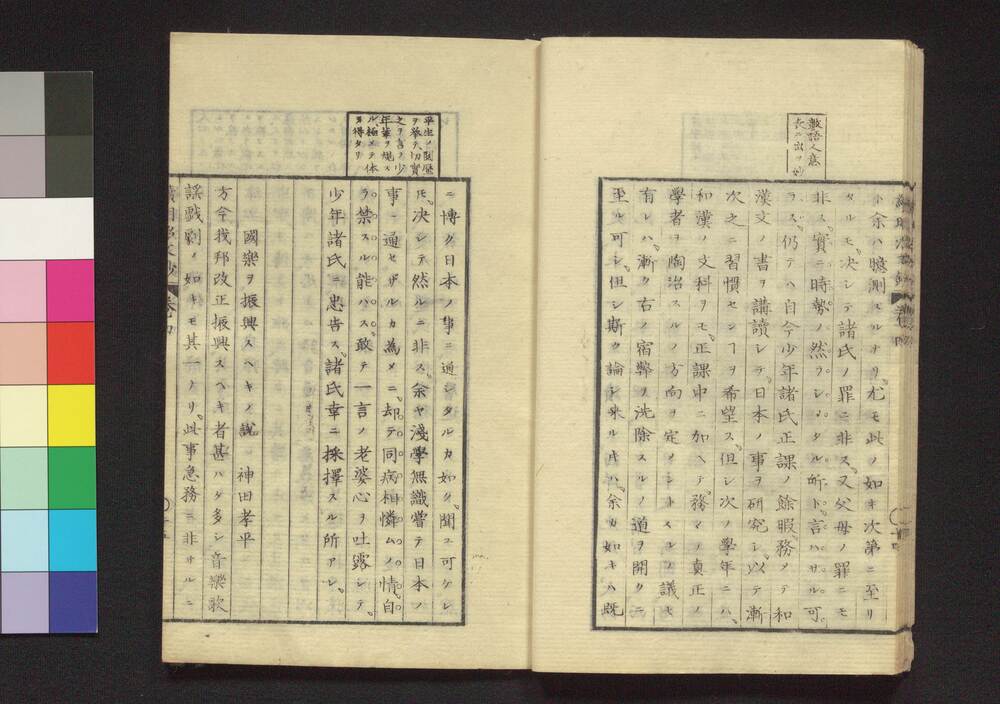 數語人意
表ニ出ツ妙
ト余ハ臆測スルナリ尤モ此ノ如キ次第ニ至リ
タルモ決シテ諸氏ノ罪ニ非ス又父母ノ罪ニモ
非ス實ニ時勢ノ然ラシメタル所ト言ハサル可
ラス仍テハ自今少年諸氏正課ノ餘暇務メテ和
漢文ノ書ヲ講讀シテ日本ノ事ヲ研究シ以テ漸
次之ニ習慣センヿヲ希望ス但シ次ノ學年ニハ
和漢ノ文科ヲモ正課中ニ加ヘテ務マノ真正ノ
學者ヲ陶治スルノ方向ヲ定メントスルノ議モ
有レハ漸ク右ノ宿弊ヲ洗除スルノ道ヲ開クニ
至ル可シ但シ斯ク論シ來ル片ハ余カ如キハ既
平生ノ閲歴
ヲ擧テ切實
之ヲ言ヲ少
年輩ヲ規ス
ル極メテ体
ヲ得タリ
ニ博ク日本ノ事ニ通シタルカ如ク聞ユ可ケレ
𪜈决シテ然ルニ非ス余ヤ淺學無識嘗テ日本ノ
事ニ通セザルカ為メニ却テ同病相憐ムノ情自
ラ禁スル能ハス敢テ一言ノ老婆心ヲ吐露シテ
少年諸氏ニ忠告ス諸氏幸ニ採擇スル所アレ
國樂ヲ振興スヘキノ說 神田孝平
方今我邦改正振興スヘキ者甚ハタ多シ音樂歌
謡戯劇ノ如キモ其一ナリ此事急務ニ非サルニ